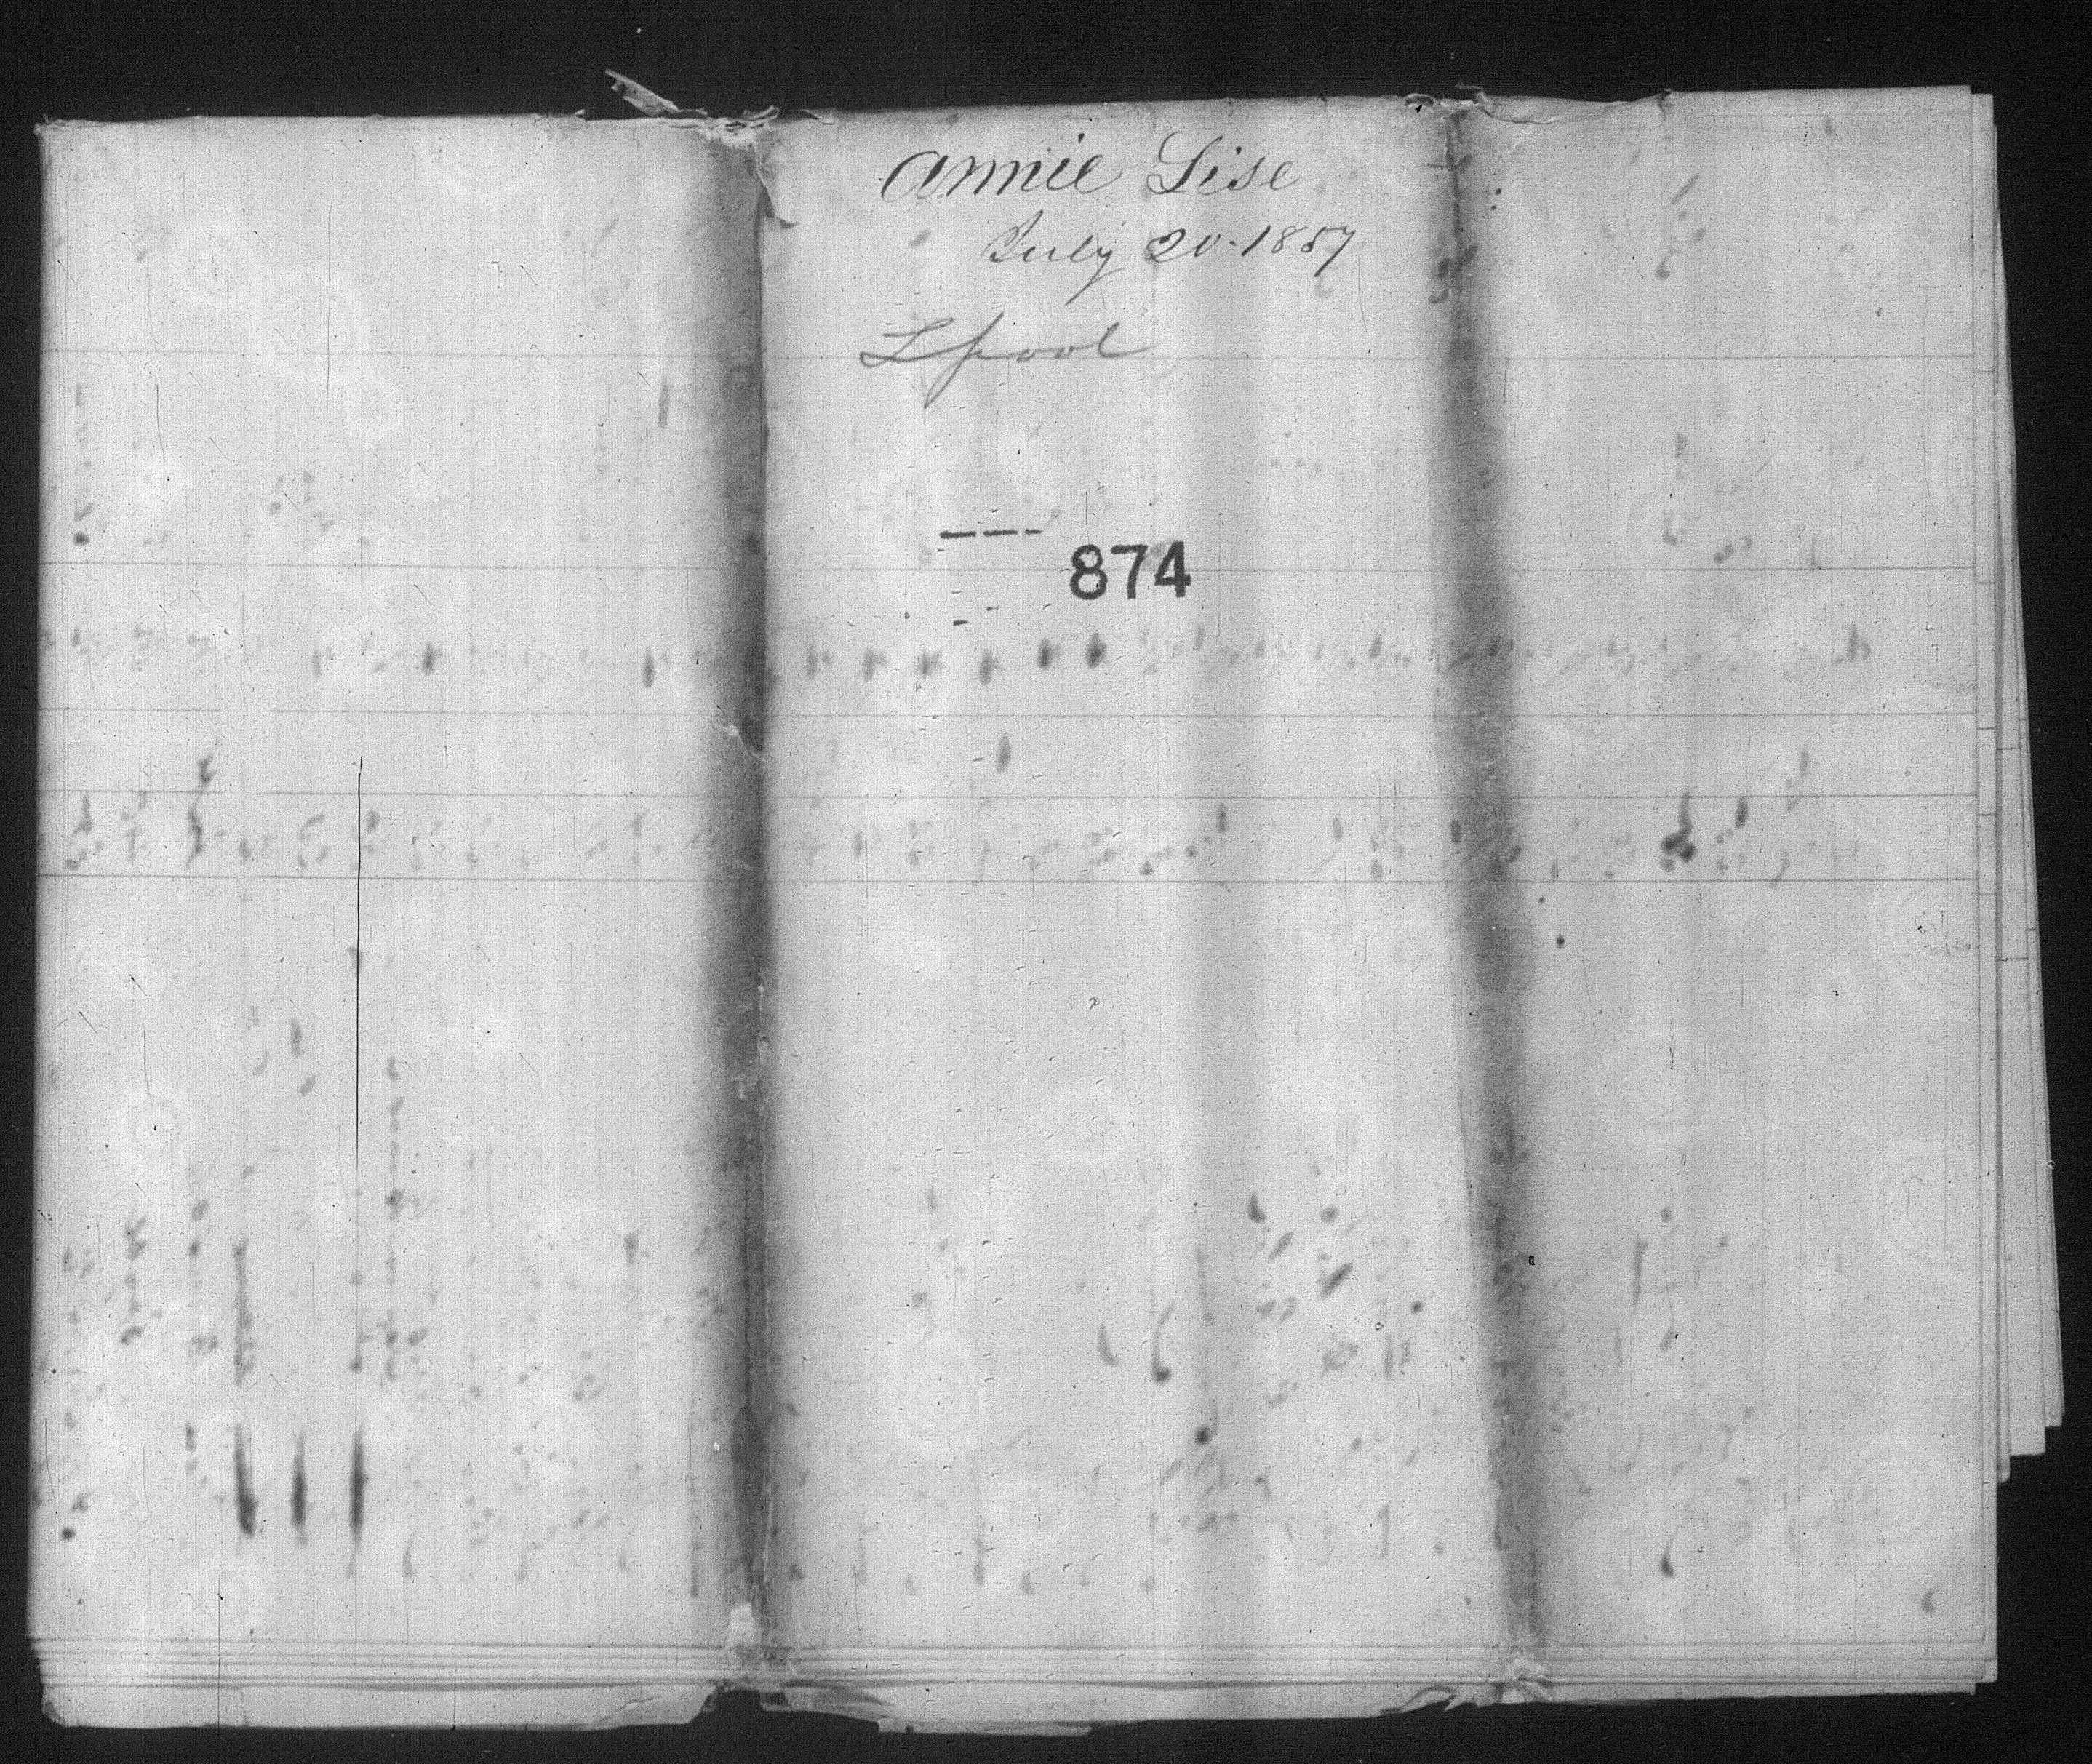 Annie Sise
July 20. 1857
Lpool
874